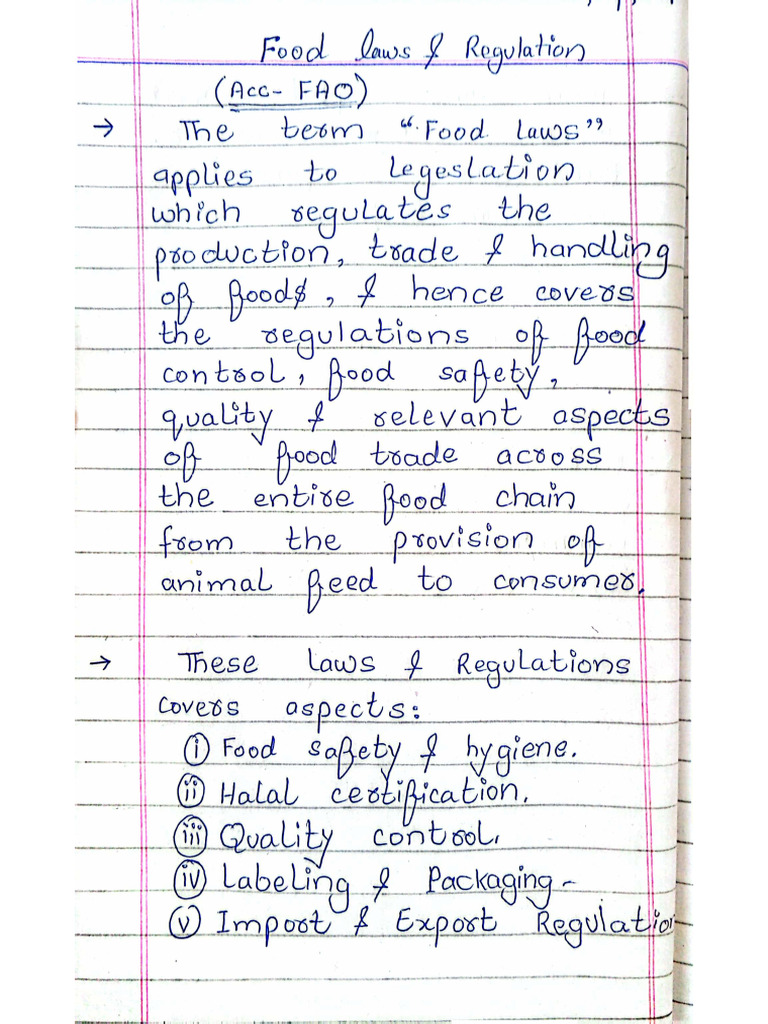 Food laws & Regulation
(Acc- FAO)
→ The term "Food laws"
applies to Legeslation
which regulates the
production, trade & handling
of foods, & hence covers
the regulations of food
control, food safety,
quality & relevant aspects
of food trade across
the entire food chain
from the provision of
animal feed to consumer.
→ These laws & Regulations
covers aspects:
(i) Food safety & hygiene.
(ii) Halal certification.
(iii) Quality control.
(iv) Labeling & Packaging -
(v) Import & Export Regulation